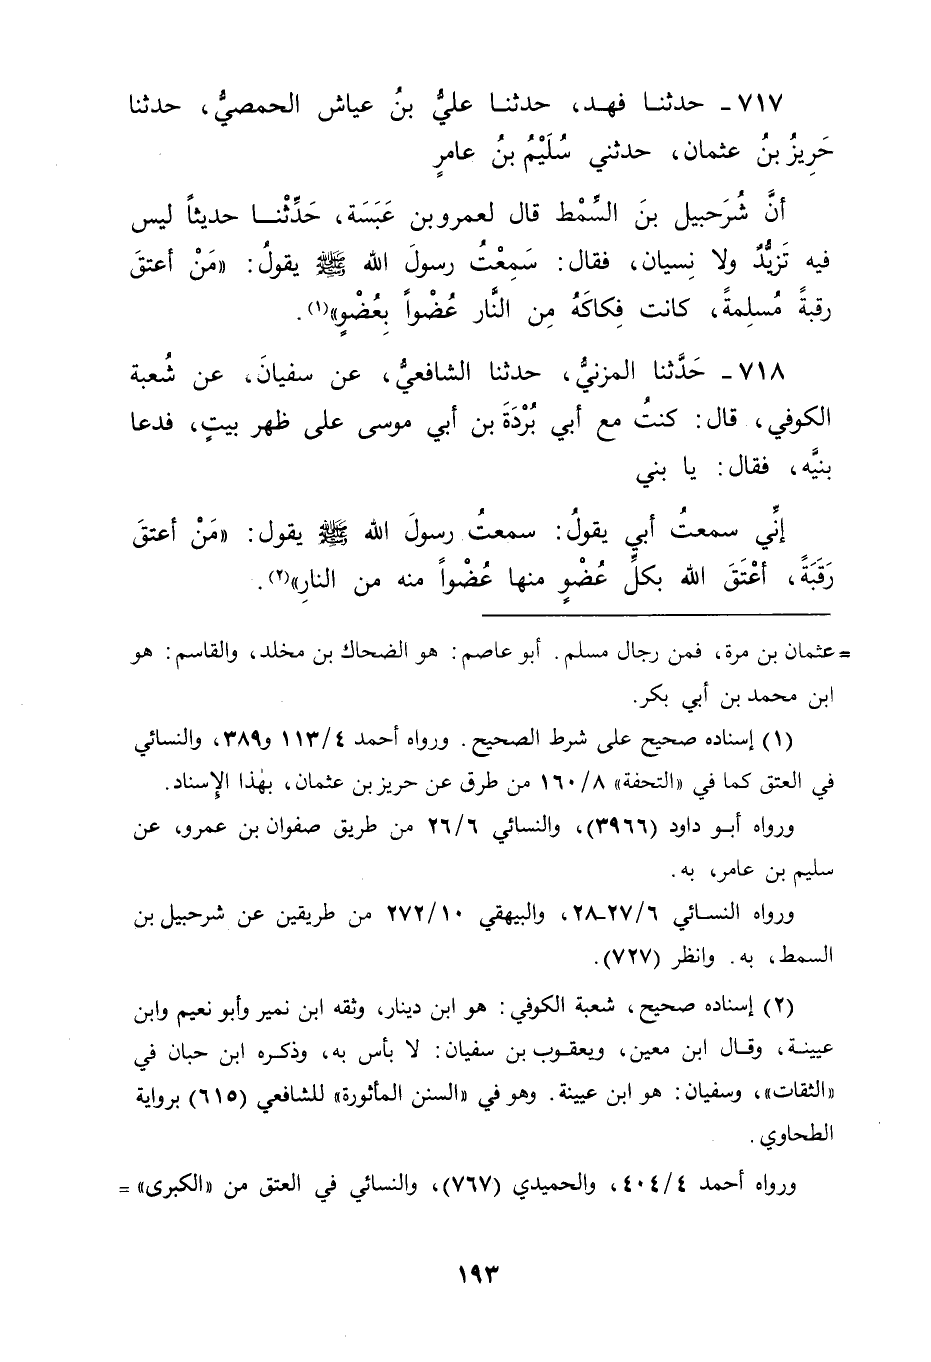 ٧١٧ـ حدثنـا فهـد، حدثنـا عليُّ بنُ عياش الحمصيُّ، حدثنا
حَرِيزُ بنُ عثمان، حدثني سُلَيْمُ بنُ عامرٍ
أنَّ شُرَحبيل بنَ السِّمْط قال لعمرو بن عَبَسَة، حَدِّثْنـا حديثاً ليس
فيه تَزيُّدٌ ولا نِسيان، فقال: سَمِعْتُ رسولَ الله ﷺ يقولُ: «مَنْ أعتقَ
رقبةً مُسلِمةً، كانت فِكاكَهُ مِن النَّار عُضْواً بِعُضْوٍ»(١).
٧١٨ـ حَدَّثنا المزنيُّ، حدثنا الشافعيُّ، عن سفيانَ، عن شُعبة
الكوفي، قال: كنتُ مع أبي بُرْدَةَ بن أبي موسى على ظهر بيتٍ، فدعا
بنيَّه، فقال: يا بني
إنِّي سمعتُ أبي يقولُ: سمعتُ رسولَ الله ﷺ يقول: «مَنْ أعتقَ
رَقَبَةً، أعْتَقَ الله بكلِّ عُضْوٍ منها عُضْواً منه من النارِ»(٢).
= عثمان بن مرة، فمن رجال مسلم. أبو عاصم: هو الضحاك بن مخلد، والقاسم: هو
ابن محمد بن أبي بكر.
(١) إسناده صحيح على شرط الصحيح. ورواه أحمد ١١٣/٤ و٣٨٩، والنسائي
في العتق كما في «التحفة» ١٦٠/٨ من طرق عن حريز بن عثمان، بهٰذا الإسناد.
ورواه أبـو داود (٣٩٦٦)، والنسائي ٢٦/٦ من طريق صفوان بن عمرو، عن
سليم بن عامر، به.
ورواه النسـائي ٢٧/٦ـ٢٨، والبيهقي ٢٧٢/١٠ من طريقين عن شرحبيل بن
السمط، به. وانظر (٧٢٧).
(٢) إسناده صحيح، شعبة الكوفي: هو ابن دينار، وثقه ابن نمير وأبو نعيم وابن
عيينـة، وقـال ابن معين، ويعقـوب بن سفيان: لا بأس به، وذكـره ابن حبان في
«الثقات»، وسفيان: هو ابن عيينة. وهو في «السنن المأثورة» للشافعي (٦١٥) برواية
الطحاوي.
ورواه أحمد ٤٠٤/٤، والحميدي (٧٦٧)، والنسائي في العتق من «الكبرى» =
١٩٣